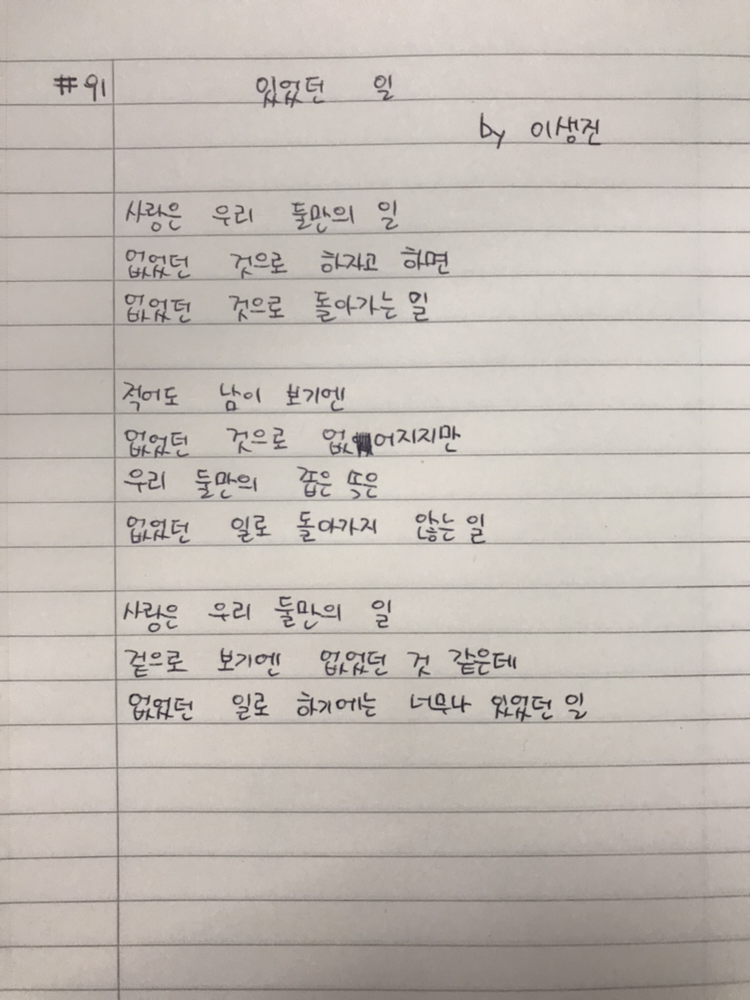 #91 있었던 일
by 이생진
사랑은 우리 둘만의 일
없었던 것으로 하자고 하면
없었던 것으로 돌아가는 일
적어도 남이 보기엔
없었던 것으로 없어지지만
우리 둘만의 좁은 속은
없었던 일로 돌아가지 않는 일
사랑은 우리 둘만의 일
겉으로 보기엔 없었던 것 같은데
없었던 일로 하기에는 너무나 있었던 일